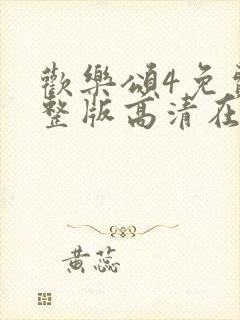 歡樂頌4免
整版高清在
黄蕊